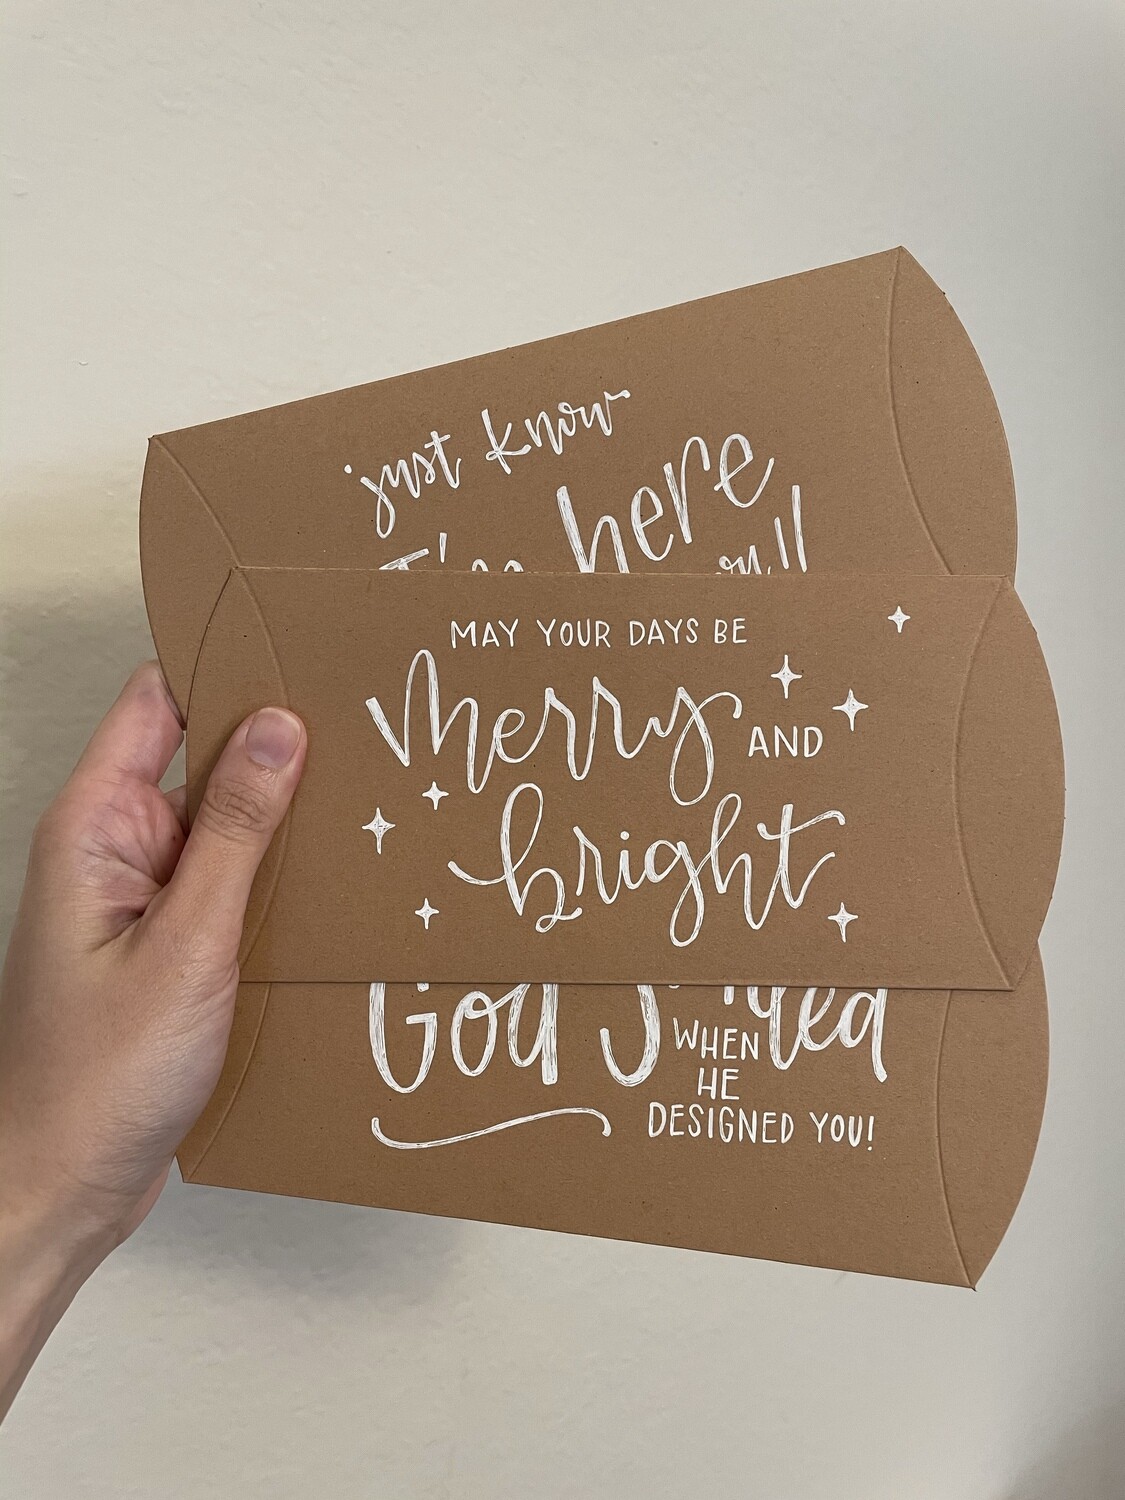 just know
I'm here
MAY YOUR DAYS BE
merry AND
bright
God Smiled
WHEN
HE
DESIGNED YOU!